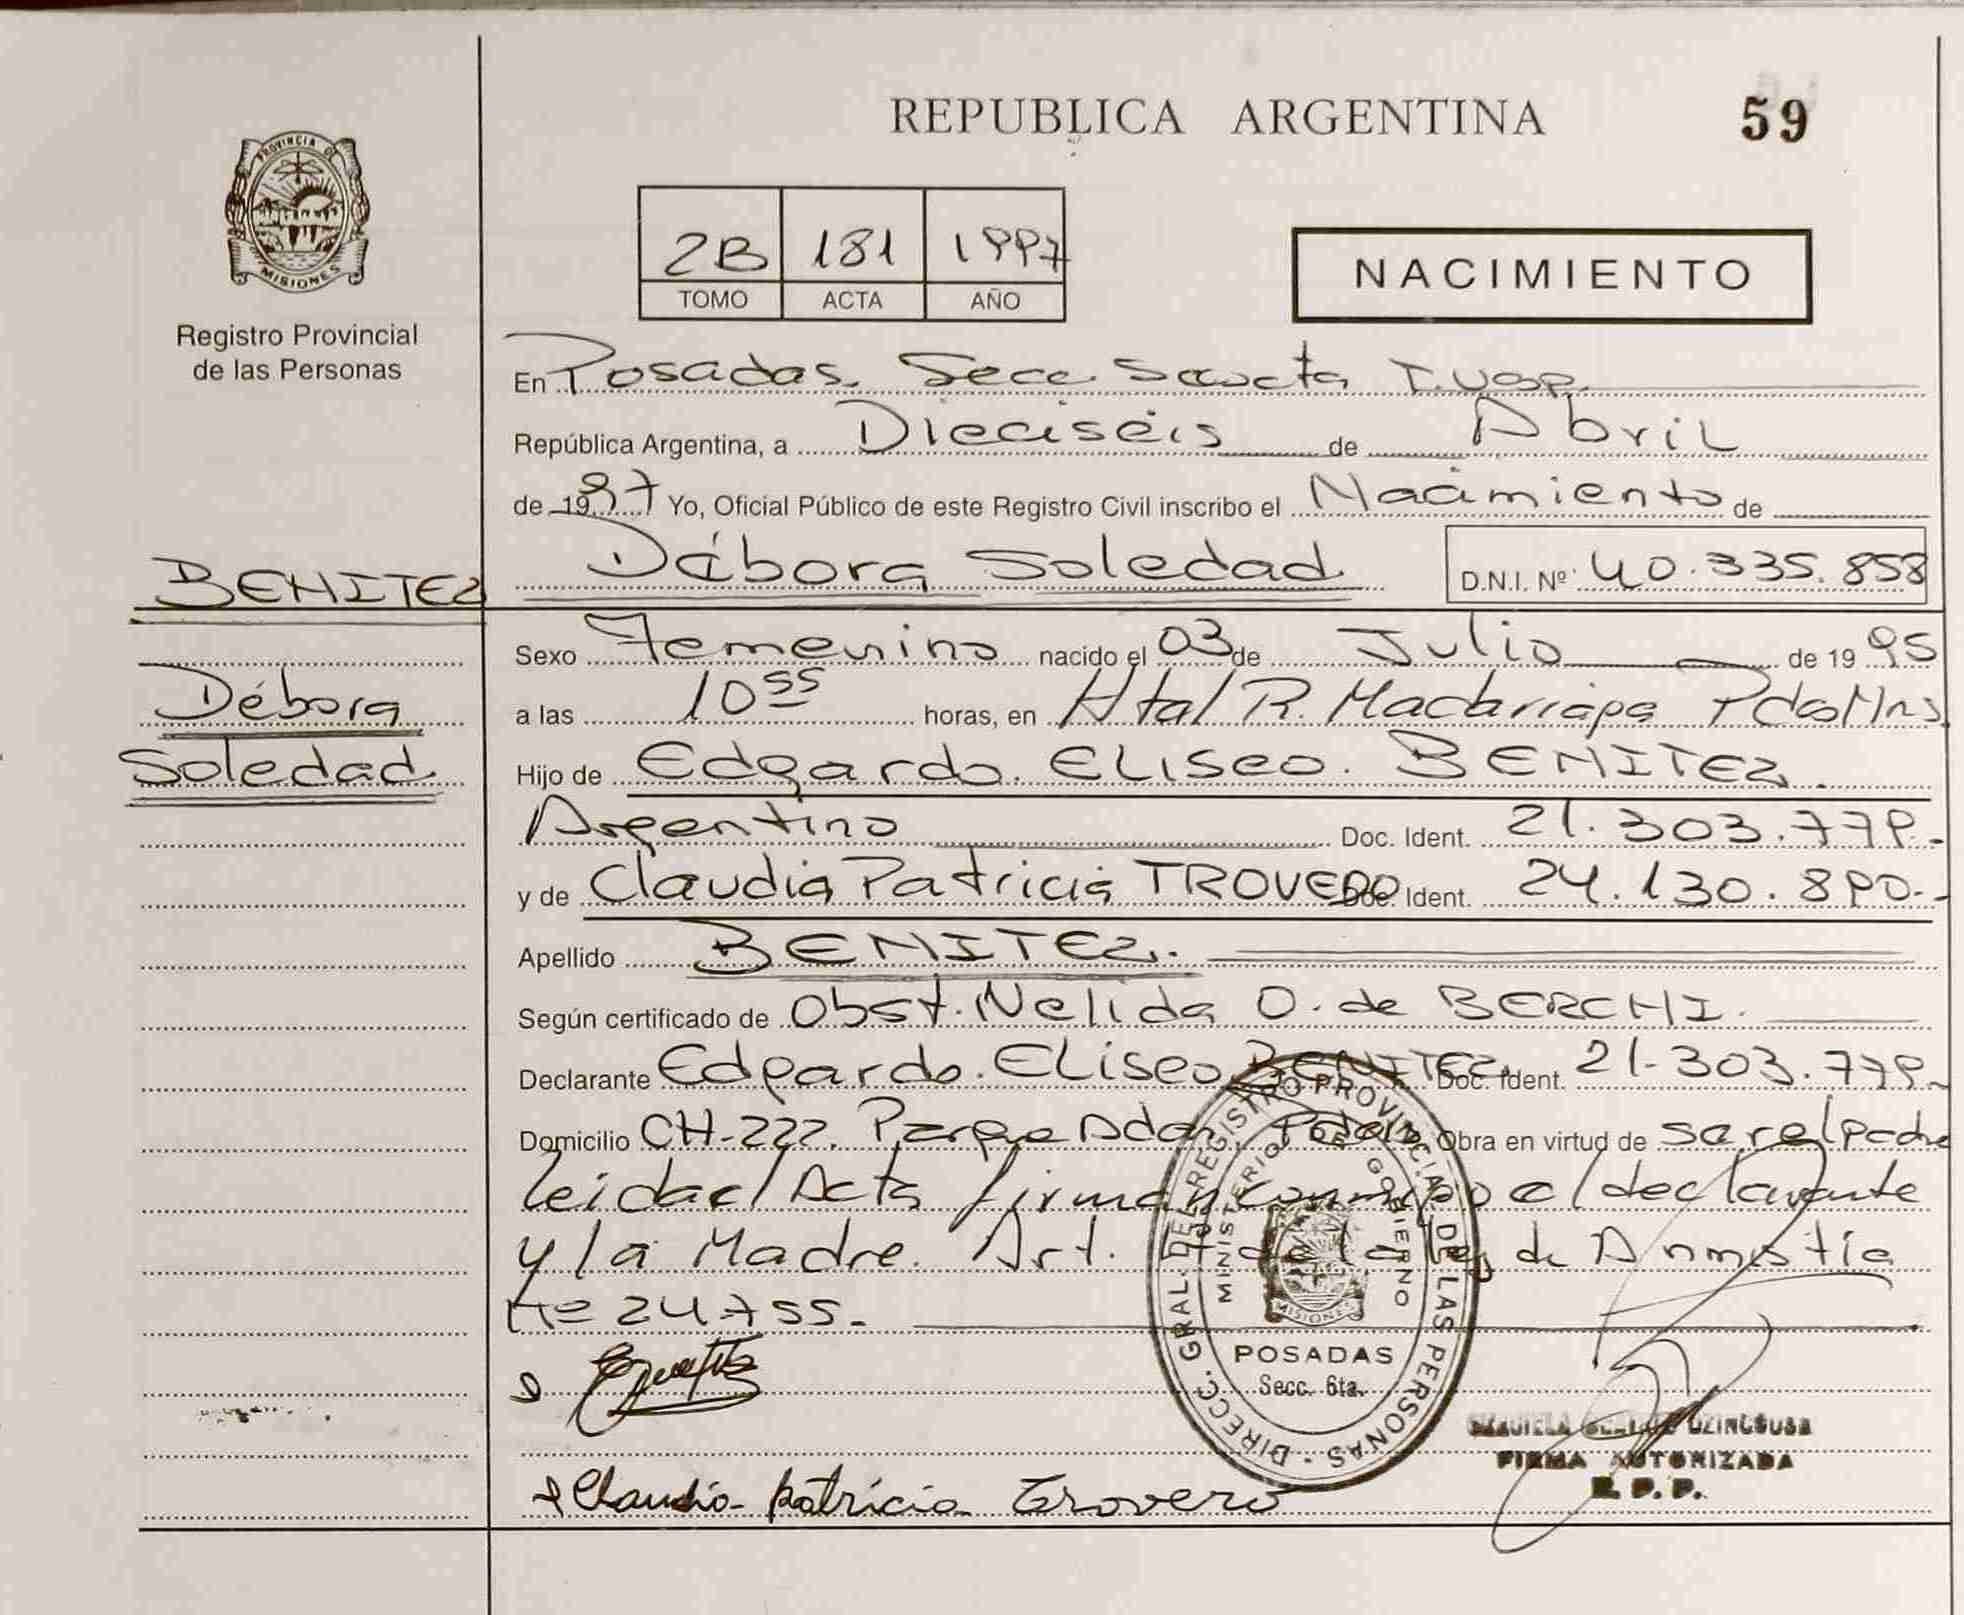 REPUBLICA ARGENTINA
59
PROVINCIA DE
MISIONES
Registro Provincial
de las Personas
2B 181 1997
TOMO ACTA AÑO
NACIMIENTO
En Posadas. Secc. Sexta
República Argentina, a Dieciséis de Abril
de 1997 Yo, Oficial Público de este Registro Civil inscribo el Nacimiento de
BENITEZ
Débora Soledad D.N.I. Nº 40.335.858
Sexo Femenino nacido el 03 de Julio de 1995
Débora
a las 10 55 horas, en Htal R. Madariaga Pdas Mns
Soledad
Hijo de Edgardo. Eliseo. BENITEZ
Argentino Doc. Ident. 21.303.779.-
y de Claudia Patricia TROVERO Doc. Ident. 24.130.890.-
Apellido BENITEZ.
Según certificado de Obst. Nelida O. de BERCHI.
Declarante Edgardo. Eliseo BENITEZ Doc. Ident. 21.303.779.-
Domicilio CH-222. Parque Adam. Pdas Obra en virtud de ser el padre
leida el Acta firman conmigo el declarante
y la Madre. Art. de la Ley de Amnistia
Nº 24.755.-
DIRECC. GRAL. DEL REGISTRO PROVINCIAL DE LAS PERSONAS
MINISTERIO DE GOBIERNO
MISIONES
POSADAS
Secc. 6ta.
FIRMA AUTORIZADA
R.P.P.
Claudia Patricia Trovero